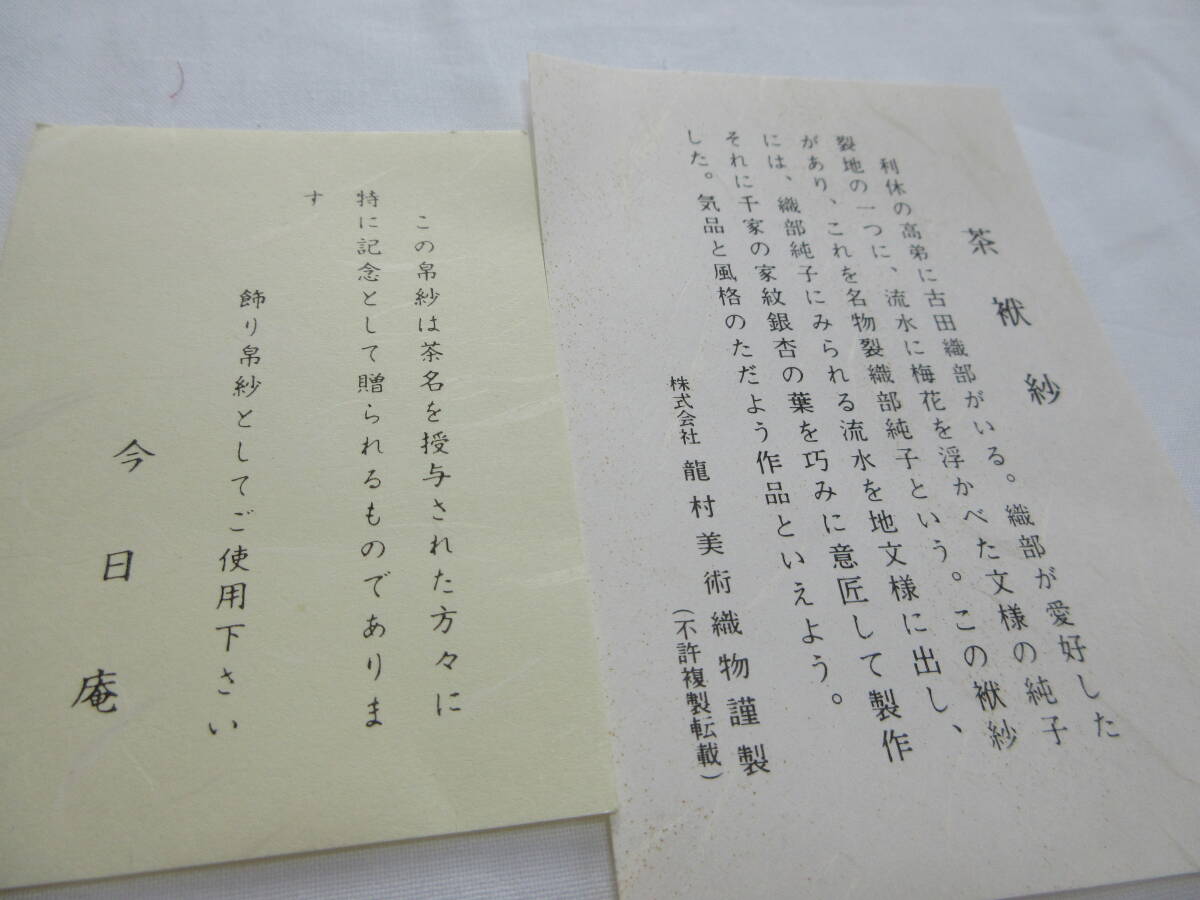 茶袱紗
利休の高弟に古田織部がいる。織部が愛好した
裂地の一つに、流水に梅花を浮かべた文様の純子
があり、これを名物裂織部純子という。この袱紗
には、織部純子にみられる流水を地文様に出し、
それに千家の家紋銀杏の葉を巧みに意匠して製作
した。気品と風格のただよう作品といえよう。
株式会社 龍村美術織物謹製
(不許複製転載)
この帛紗は茶名を授与された方々に
特に記念として贈られるものでありま
す
飾り帛紗としてご使用下さい
今日庵